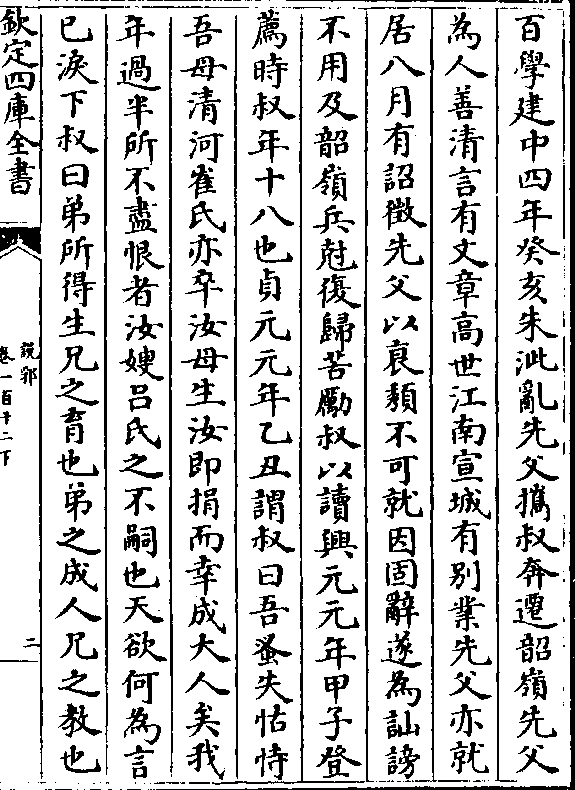 百學建中四年癸亥朱泚亂先父攜叔奔遷韶嶺先父
為人善清言有文章高世江南宣城有别業先父亦就
居八月有詔徵先父以衰纇不可就因固辭遂為訕謗
不用及韶嶺兵尅復歸苦勵叔以讀興元元年甲子登
薦時叔年十八也貞元元年乙丑謂叔曰吾蚤失怙恃
吾母清河崔氏亦卒汝母生汝即捐而幸成大人矣我
年過半所不盡恨者汝嫂吕氏之不嗣也天欲何為言
已淚下叔曰弟所得生兄之育也弟之成人兄之教也
欽定四庫全書
說郛
卷一百十二下
二